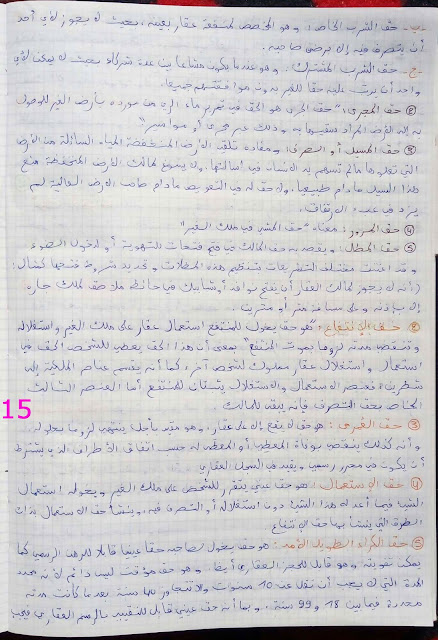 ب- حق الشرب الخاص: وهو المخصص لمنفعة عقار بعينه، بحيث لا يجوز لأي أحد
أن يتصرف فيه إلا برضى صاحبه.
ج- حق الشرب المشترك: وهو عندما يكون مشاعا بين عدة شركاء بحيث لا يمكن لأي
واحد أن يرتب عليه حقا للغير بدون موافقتهم جميعا.
② حق المجرى: "حق المجرى هو الحق في تمرير ماء الري من مورده بأرض الغير للوصول
به إلى الأرض المراد سقيها به وذلك عبر مجرى أو مواسير"
③ حق المسيل أو الصرف: ومفاده تلقي الأرض المنخفضة المياه السائلة من الأرض
التي تعلوها ما لم تسهم يد الإنسان في إسالتها، ولا يسوغ لمالك الأرض المنخفضة منع
هذا السيل مادام طبيعيا، ولا حق له في التعويض مادام صاحب الأرض العالية لم
يزد في عبء الارتفاق.
④ حق المرور: معناه "حق المشي في ملك الغير"
⑤ حق المطل: ويقصد به حق المالك في فتح فتحات للتهوية أو لدخول الضوء
وقد اعتنت مختلف التشريعات بتنظيم هذه المطلات وتحديد شروط فتحها كمثال:
(أنه لا يجوز لمالك العقار أن يفتح نوافذ أو شبابيك في حائط ملاصق لملك جاره
إلا بإذنه وعلى مسافة متر أو مترين).
② حق الإنتفاع: هو حق يخول للمنتفع استعمال عقار على ملك الغير واستغلاله
وتنقضي مدته لزوما بموت المنتفع" بمعنى أن هذا الحق يعطي للشخص الحق في
استعمال واستغلال عقار مملوك لشخص آخر، كما أنه يقسم عناصر الملكية إلى
شطرين، فعنصر الاستعمال والاستغلال يثبتان للمنتفع أما العنصر الثالث
الخاص بحق التصرف فإنه يبقى للمالك.
15
③ حق العمرى: هو حق لا يقع إلا على عقار، وهو مقيد بأجل ينتهي لزوما بحلوله
وأنه كذلك ينقضي بوفاة المعطي أو المعطى له حسب اتفاق الأطراف الذي يشترط
أن يكون في محرر رسمي، ويقيد في السجل العقاري
④ حق الإستعمال: هو حق عيني يتقرر للشخص على ملك الغير ويخوله استعمال
الشيء فيما أعد له هذا الشيء دون استغلاله أو التصرف فيه، وينشأ حق الاستعمال بذات
الطرق التي ينشأ بها حق الانتفاع
⑤ حق الكراء الطويل الأمد: هو حق يخول لصاحبه حقا عينيا قابلا للرهن الرسمي كما
يمكن تفويته وهو قابل للحجز العقاري أيضا، وهو حق مؤقت ليس دائم لأنه محدد
المدة التي لا يجب أن تقل عن 10 سنوات ولا تتجاوز 40 سنة بعدما كانت مدته
محددة فيما بين 18 و 99 سنة، وبما أنه حق عيني قابل للتقييد بالرسم العقاري فيجب